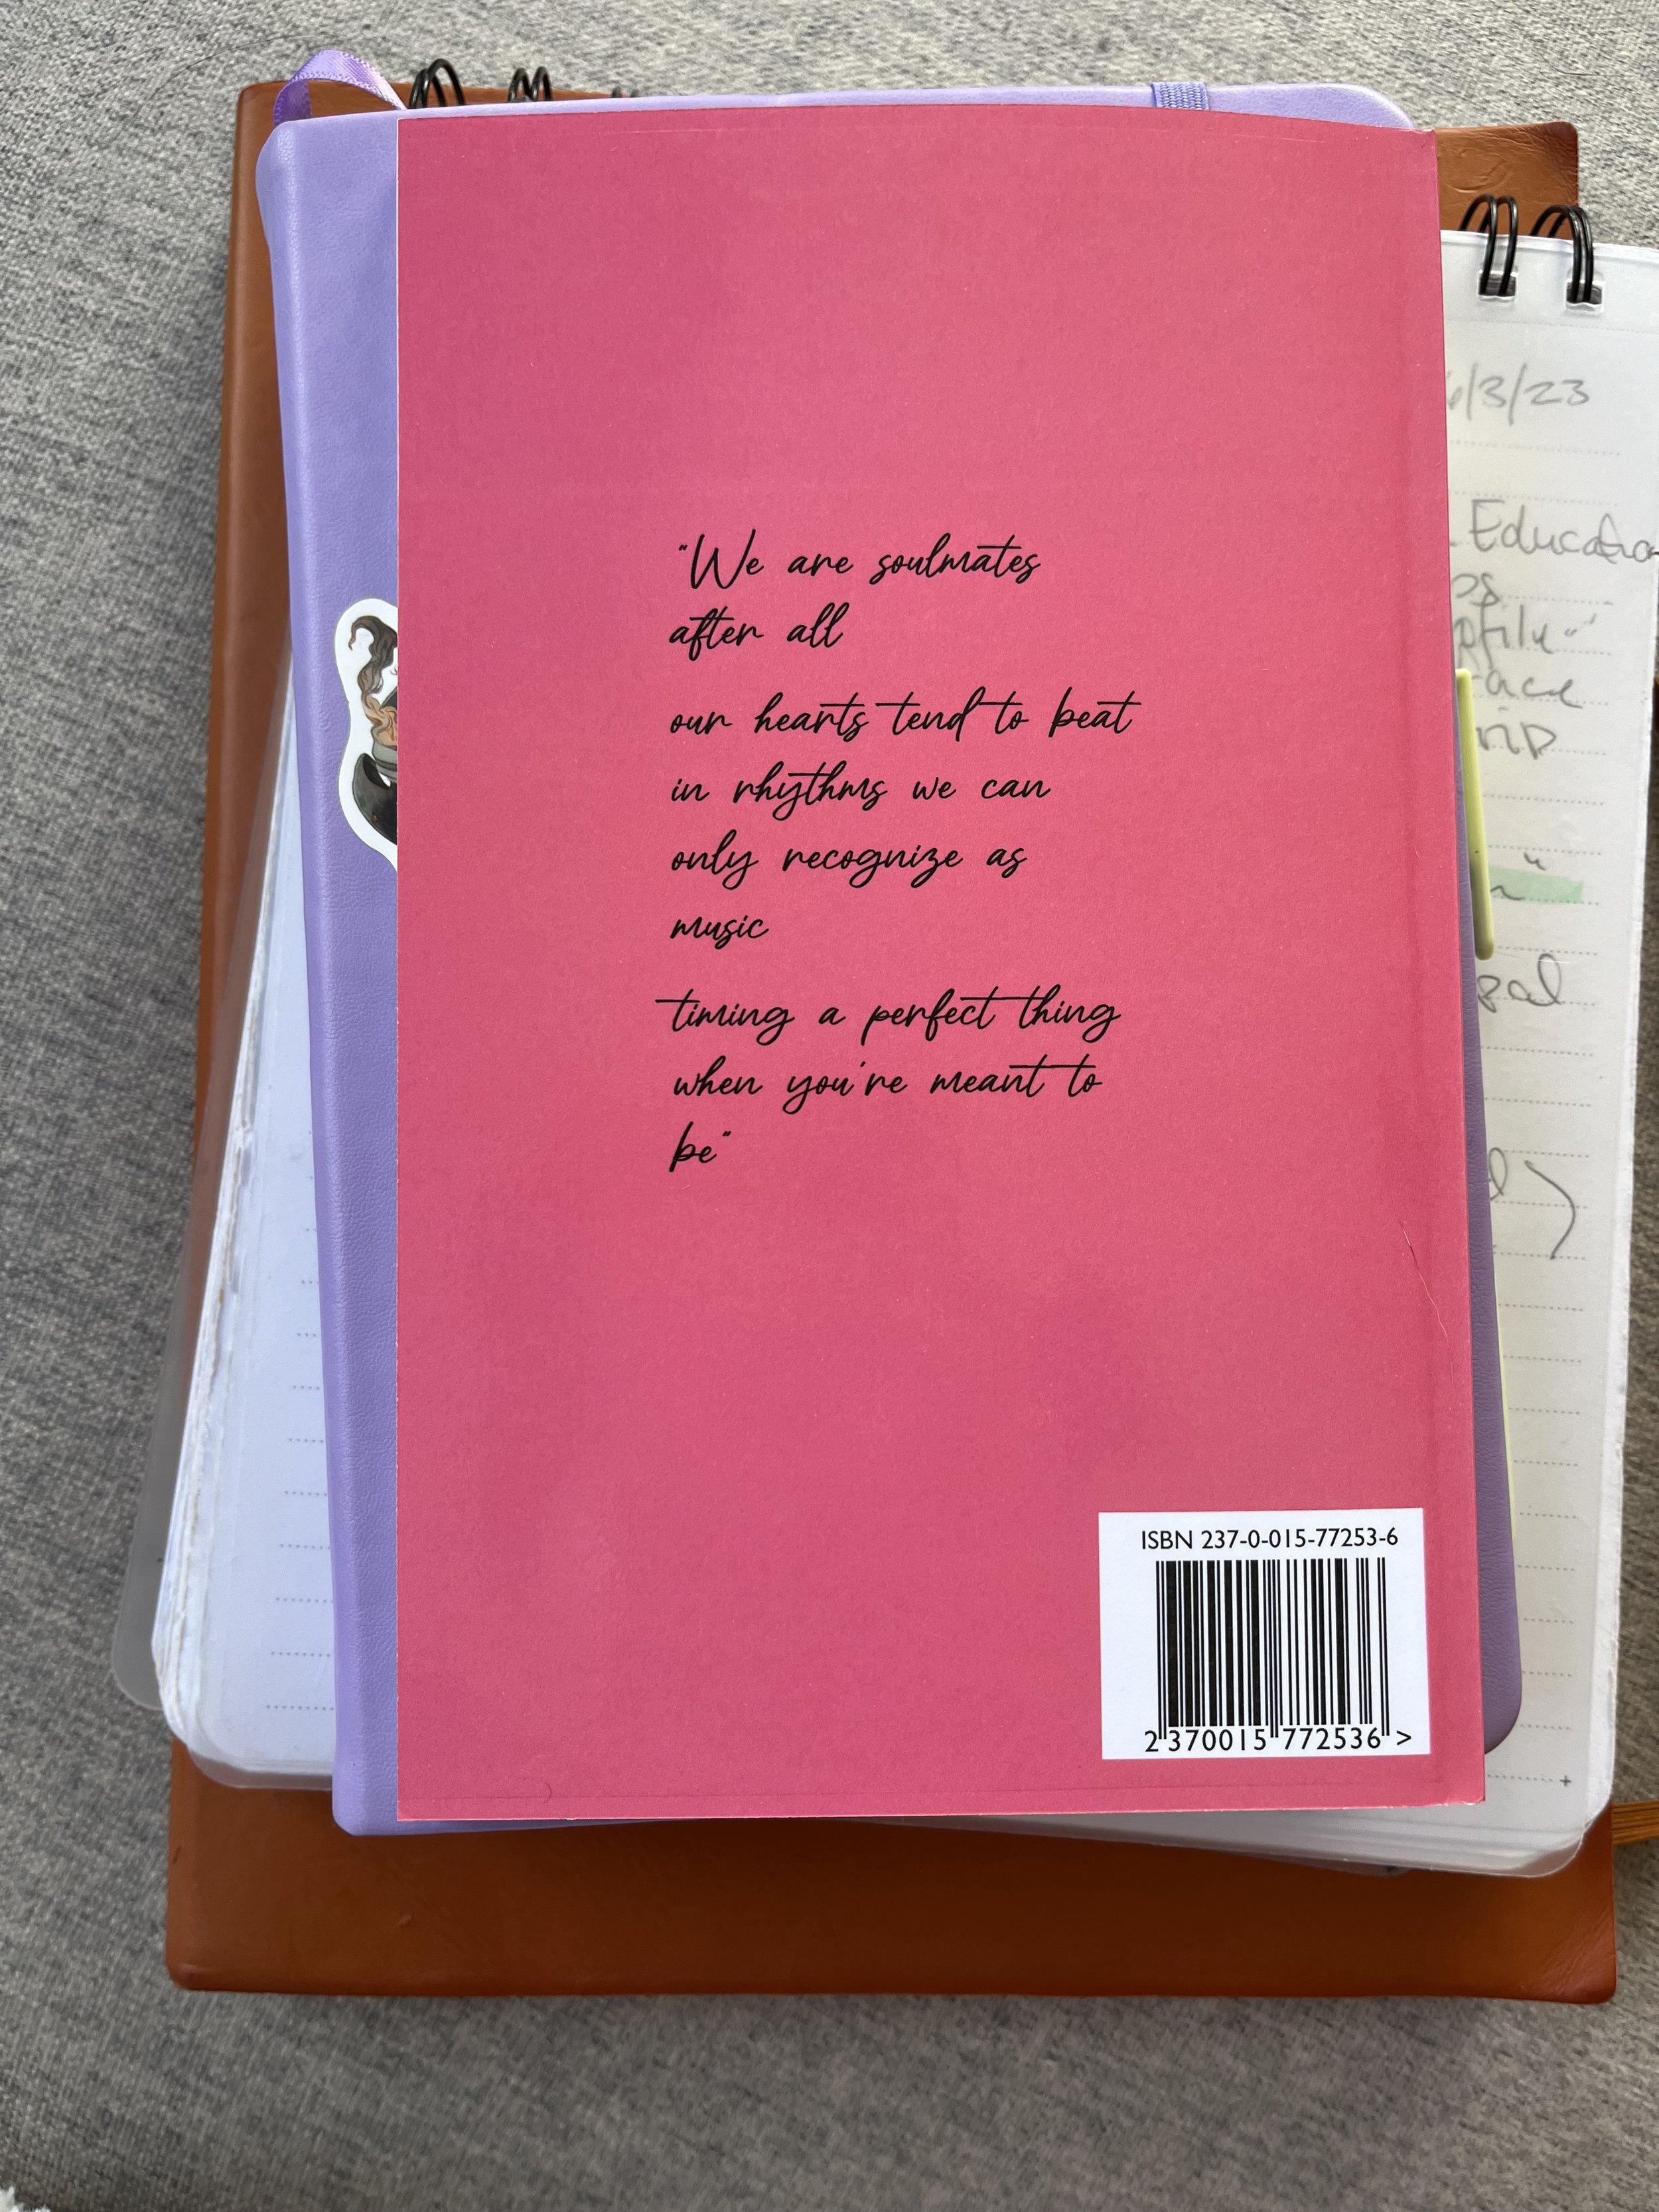 "We are soulmates
after all
our hearts tend to beat
in rhythms we can
only recognize as
music
timing a perfect thing
when you're meant to
be"
ISBN 237-0-015-77253-6
2 370015 772536 >
/3/23
Educatio